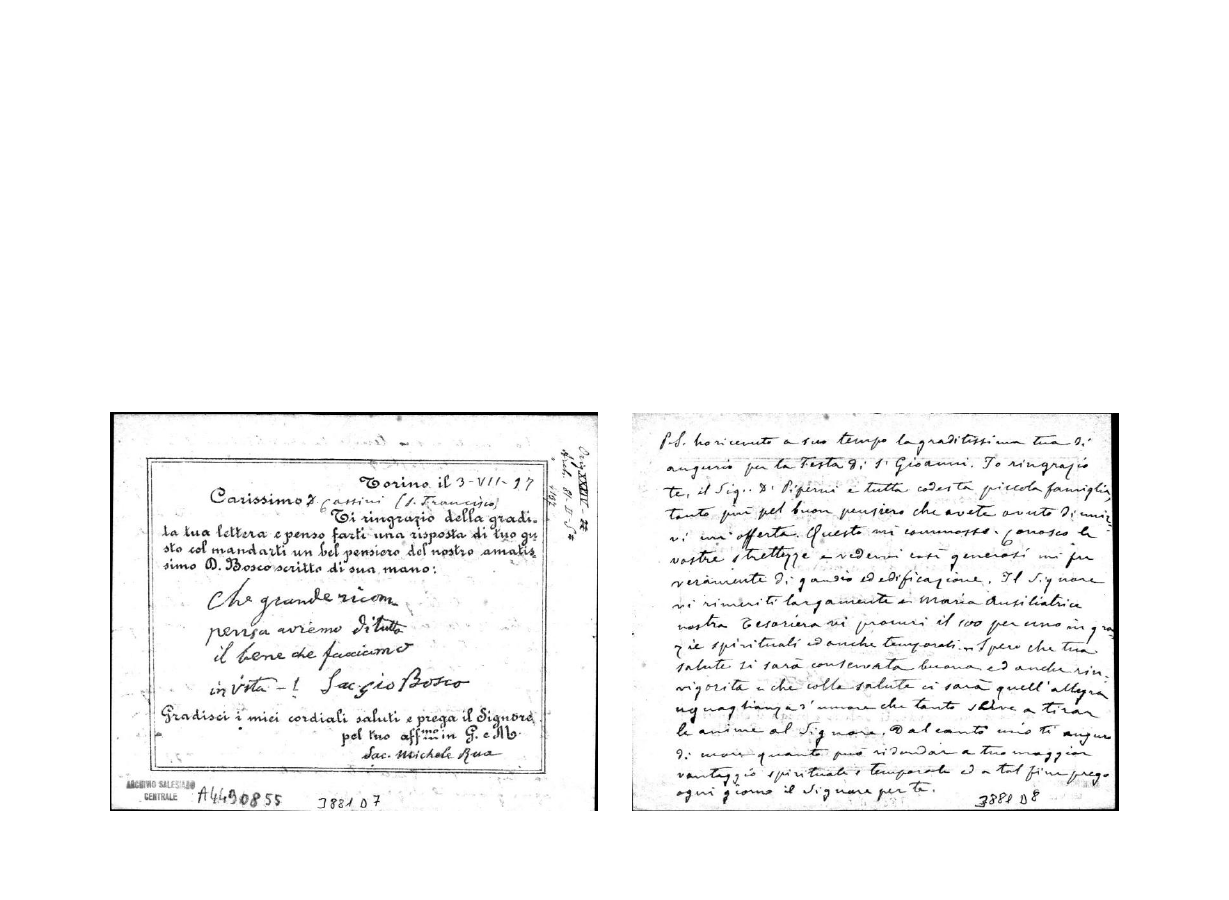 Torino, il 3-VII-97
Carissimo D. Cassini (S. Francisco)
Ti ringrazio della gradi-
ta tua lettera e penso farti una risposta di tuo gu
sto col mandarti un bel pensiero del nostro amatis-
simo D. Bosco scritto di sua mano:
Che grande ricom
pensa avremo di tutto
il bene che facciamo
in vita - ! Sac Gio Bosco
Gradisci i miei cordiali saluti e prega il Signore
pel tuo aff.mo in G. e M.
Sac. Michele Rua
ARCHIVIO SALESIANO
CENTRALE
A4490855
3881 D7
P.S. ho ricevuto a suo tempo la graditissima tua di
augurio per la Festa di S. Gioanni. Io ringrazio
te, il Sig. D. Piperni e tutta codesta piccola famiglia,
tanto più pel buon pensiero che avete avuto di unir
vi un'offerta. Questo mi commosse. Conosco le
vostre strettezze e vedervi così generosi mi fu
veramente di gaudio ed edificazione. Il Signore
vi rimeriti largamente e Maria Ausiliatrice
vostra Tesoriera vi procuri il 100 per uno in gra
zie spirituali ed anche temporali. Spero che tua
salute si sarà conservata buona ed anche rin-
vigorita e che colla salute ci sarà quell'allegra
uguaglianza d'umore che tanto serve a tirar
le anime al Signore. Dal canto mio ti auguro
di cuore quanto può ridondar a tuo maggior
vantaggio spirituale e temporale ed a tal fine prego
ogni giorno il Signore per te.
3881 D8